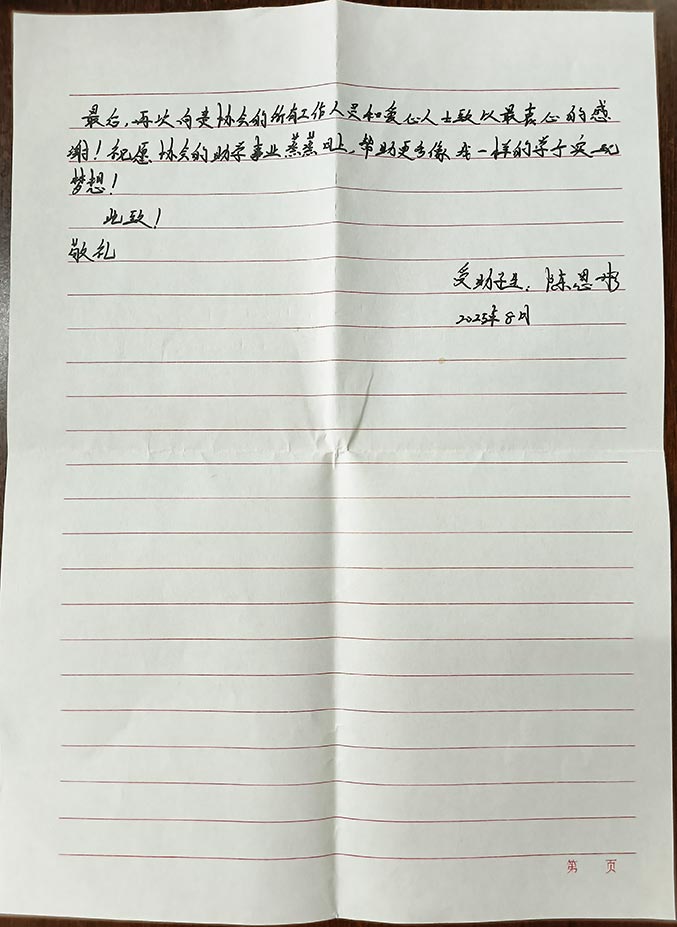 最后，再次向贵协会的所有工作人员和爱心人士致以最真心的感
谢！祝愿协会的助学事业蒸蒸日上，帮助更多像我一样的学子实现
梦想！
此致！
敬礼
受助学生：陈恩
2025年8月
第 页